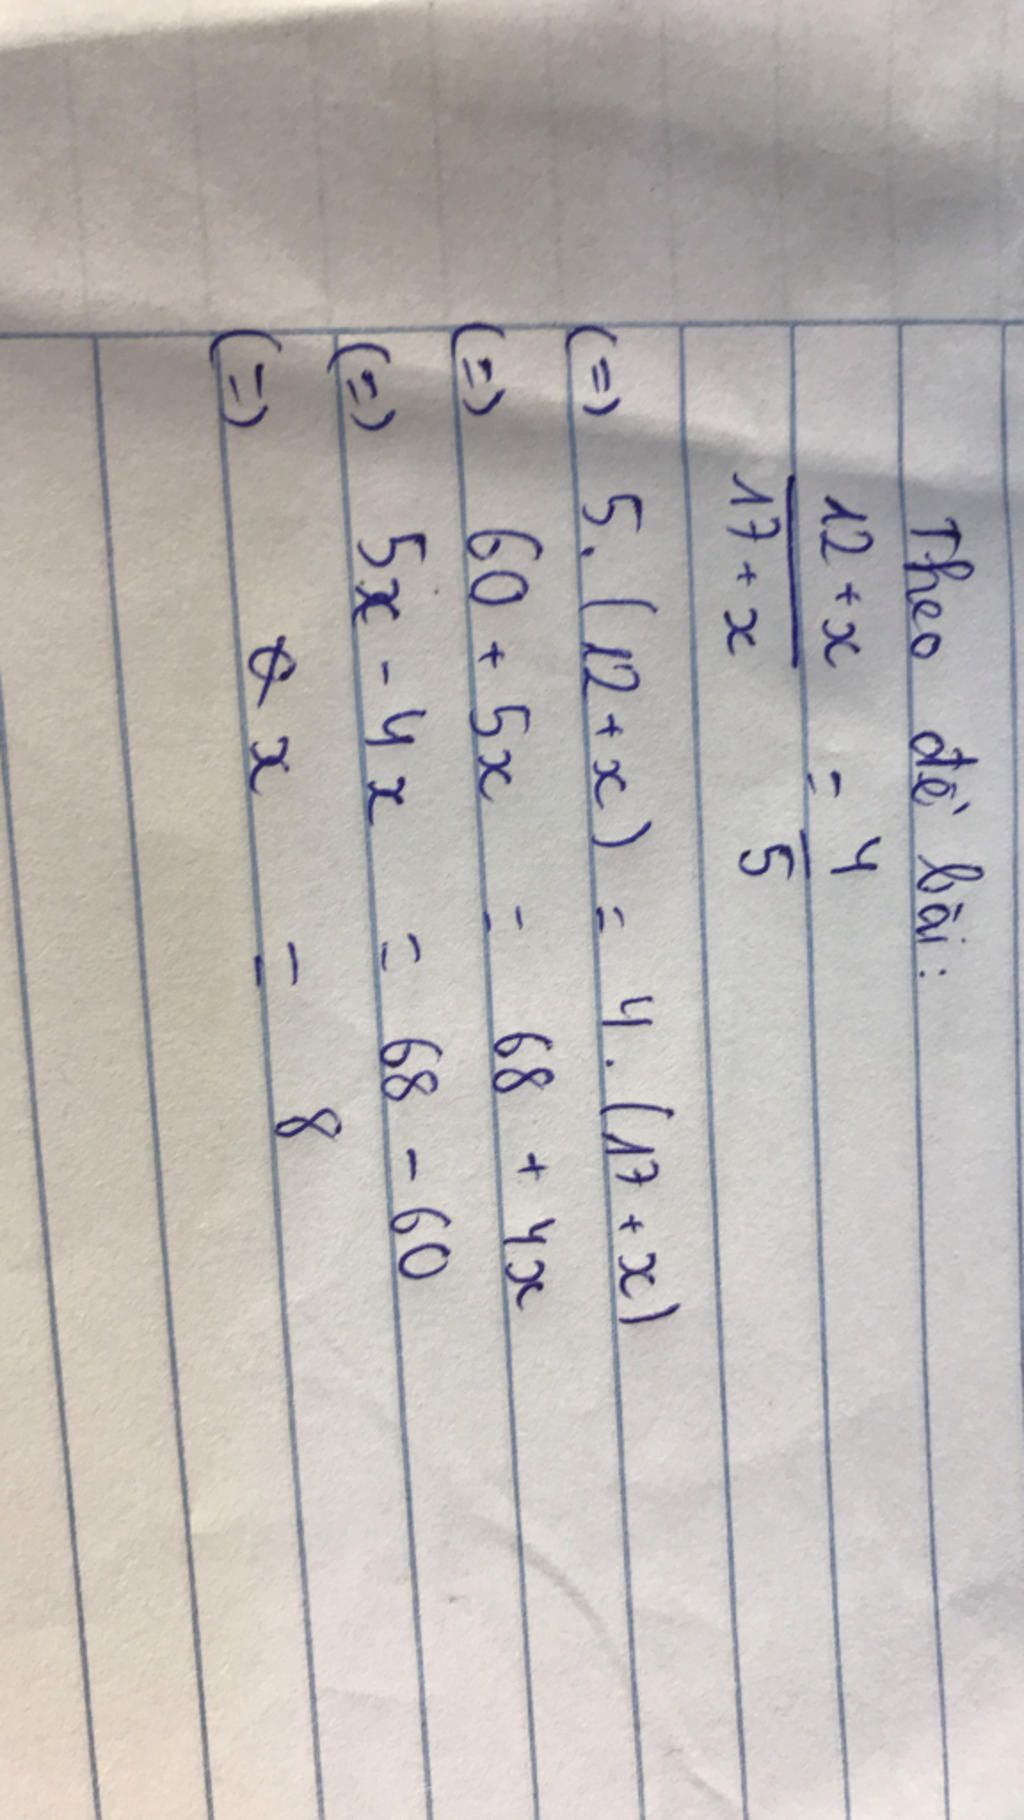 Theo đề bài:
12 + x / 17 + x = 4 / 5
(=) 5. (12 + x) = 4. (17 + x)
(=) 60 + 5x = 68 + 4x
(=) 5x - 4x = 68 - 60
(=) x = 8